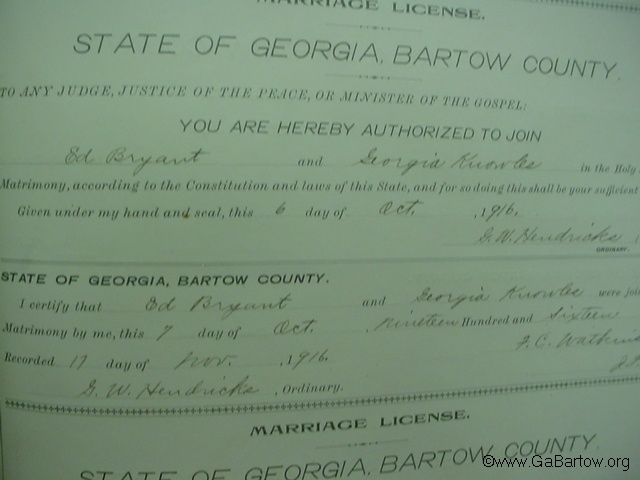 MARRIAGE LICENSE.
STATE OF GEORGIA, BARTOW COUNTY.
TO ANY JUDGE, JUSTICE OF THE PEACE, OR MINISTER OF THE GOSPEL:
YOU ARE HEREBY AUTHORIZED TO JOIN
Ed Bryant and Georgia Knowles in the Holy
Matrimony, according to the Constitution and laws of this State, and for so doing this shall be your sufficient
Given under my hand and seal, this 6 day of Oct. , 1916.
G. W. Hendricks
ORDINARY.
STATE OF GEORGIA, BARTOW COUNTY.
I certify that Ed Bryant and Georgia Knowles were joi
Matrimony by me, this 7 day of Oct. , Nineteen Hundred and Sixteen
J. C. Watkins
Recorded 17 day of Nov. , 1916. J.P.
G. W. Hendricks , Ordinary.
MARRIAGE LICENSE.
STATE OF GEORGIA, BARTOW COUNTY.
©www.GaBartow.org